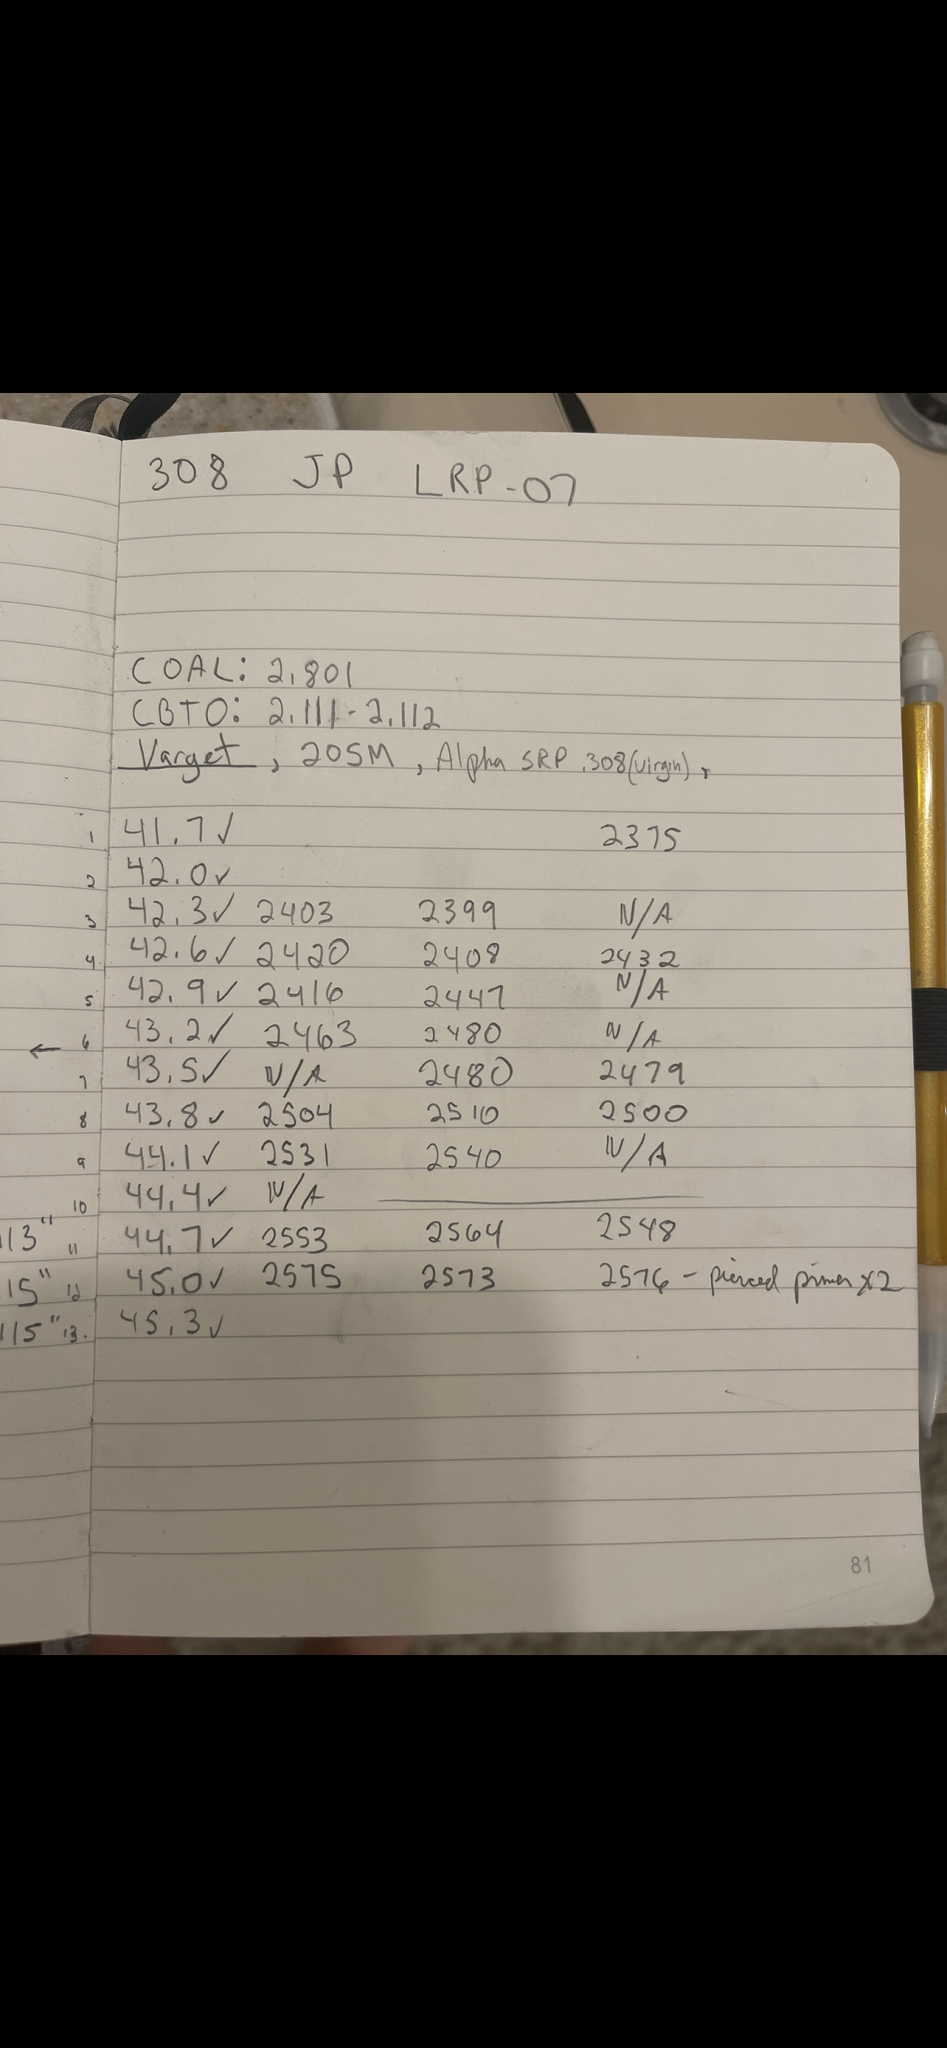 308 JP LRP-07
COAL: 2.801
CBTO: 2.111-2.112
Varget, 205M, Alpha SRP .308(virgin),
1 41.7✓ 2375
2 42.0✓
3 42.3✓ 2403 2399 N/A
4 42.6✓ 2420 2408 2432
5 42.9✓ 2416 2447 N/A
← 6 43.2✓ 2463 2480 N/A
7 43.5✓ N/A 2480 2479
8 43.8✓ 2504 2510 2500
9 44.1✓ 2531 2540 N/A
10 44.4✓ N/A
13" 11 44.7✓ 2553 2564 2548
15" 12 45.0✓ 2575 2573 2576 - pierced primer x2
115" 13. 45.3✓
81